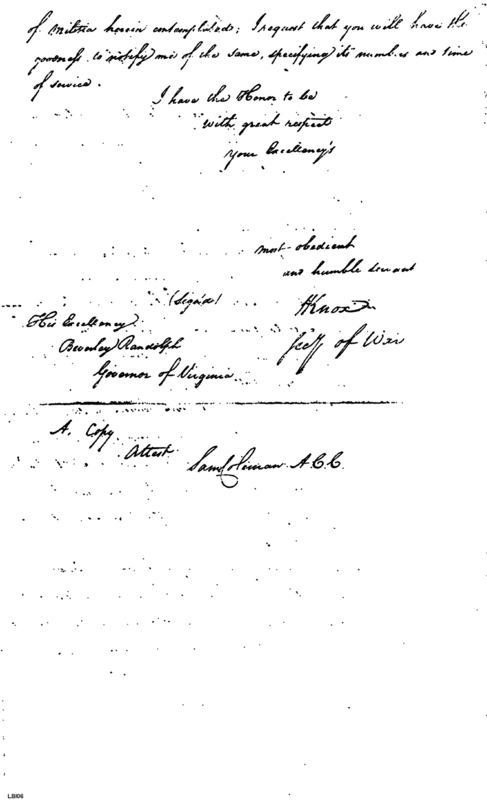 of militia herein contemplated; I request that you will have the
goodness to notify me of the same, specifying its number and time
of service.
I have the Honor to be
with great respect
your Excellency's
most obedient
and humble servant
(signed)
HKnox
His Excellency
Secy of War
Beverley Randolph
Governor of Virginia
A. Copy
Attest
Sam Coleman A.C.C.
LBI06